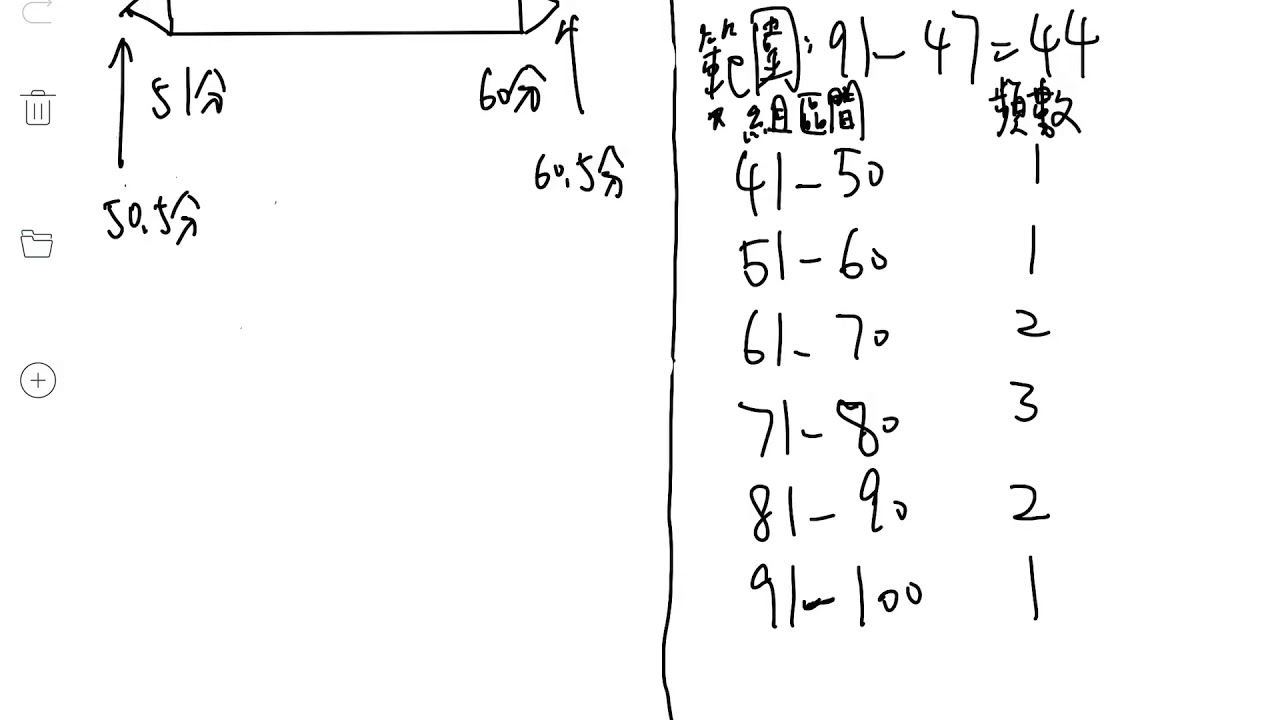 51分 60分
60.5分
50.5分
範圍: 91 - 47 = 44
組區間 頻數
41 - 50 1
51 - 60 1
61 - 70 2
71 - 80 3
81 - 90 2
91 - 100 1